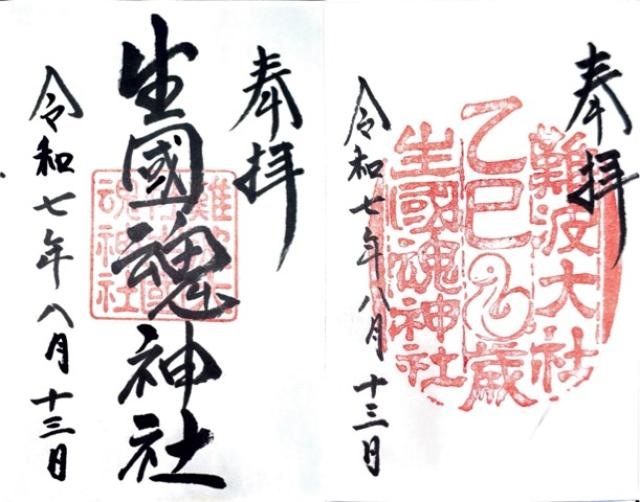 奉拝
生國魂神社
難波大社生國魂神社
令和七年八月十三日
奉拝
難波大社
乙巳歳
生國魂神社
令和七年八月十三日